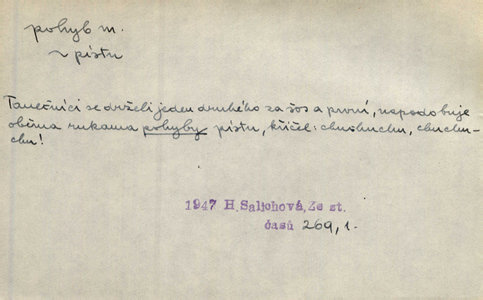 pohyb m.
~ pístu
Tanečníci se drželi jeden druhého za šos a první, napodobuje
oběma rukama pohyby pístu, křičel: chuchuchu, chuchu-
chu!
1947 H. Salichová, Ze st.
časů 269, 1.